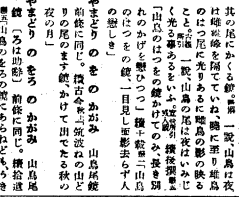 其の尾にかくる鏡。一説、山鳥は夜
は雌雄峰を隔てていね、曉に至り雄鳥
のはつ尾に光りあるに雌鳥の影の映る
をいふ。一説、山鳥の尾は夜はいみじ
く光る事あるをいふ。
「山鳥のはつをの鏡かけのみ、長き別
れのかげを戀ひつつ」「山鳥
のはつをの鏡、一目見し面影去らず人
の戀しき」
やまどり の を の かがみ 山鳥尾鏡
前條に同じ。「筑波ねの山ど
りの尾のます鏡かけて出でたる秋の
夜の月」
やまどり のをろ の かがみ 山鳥尾
鏡 「ろは助辭」 前條に同じ。續拾遺
「山鳥のをろの鏡にあらねども、うき